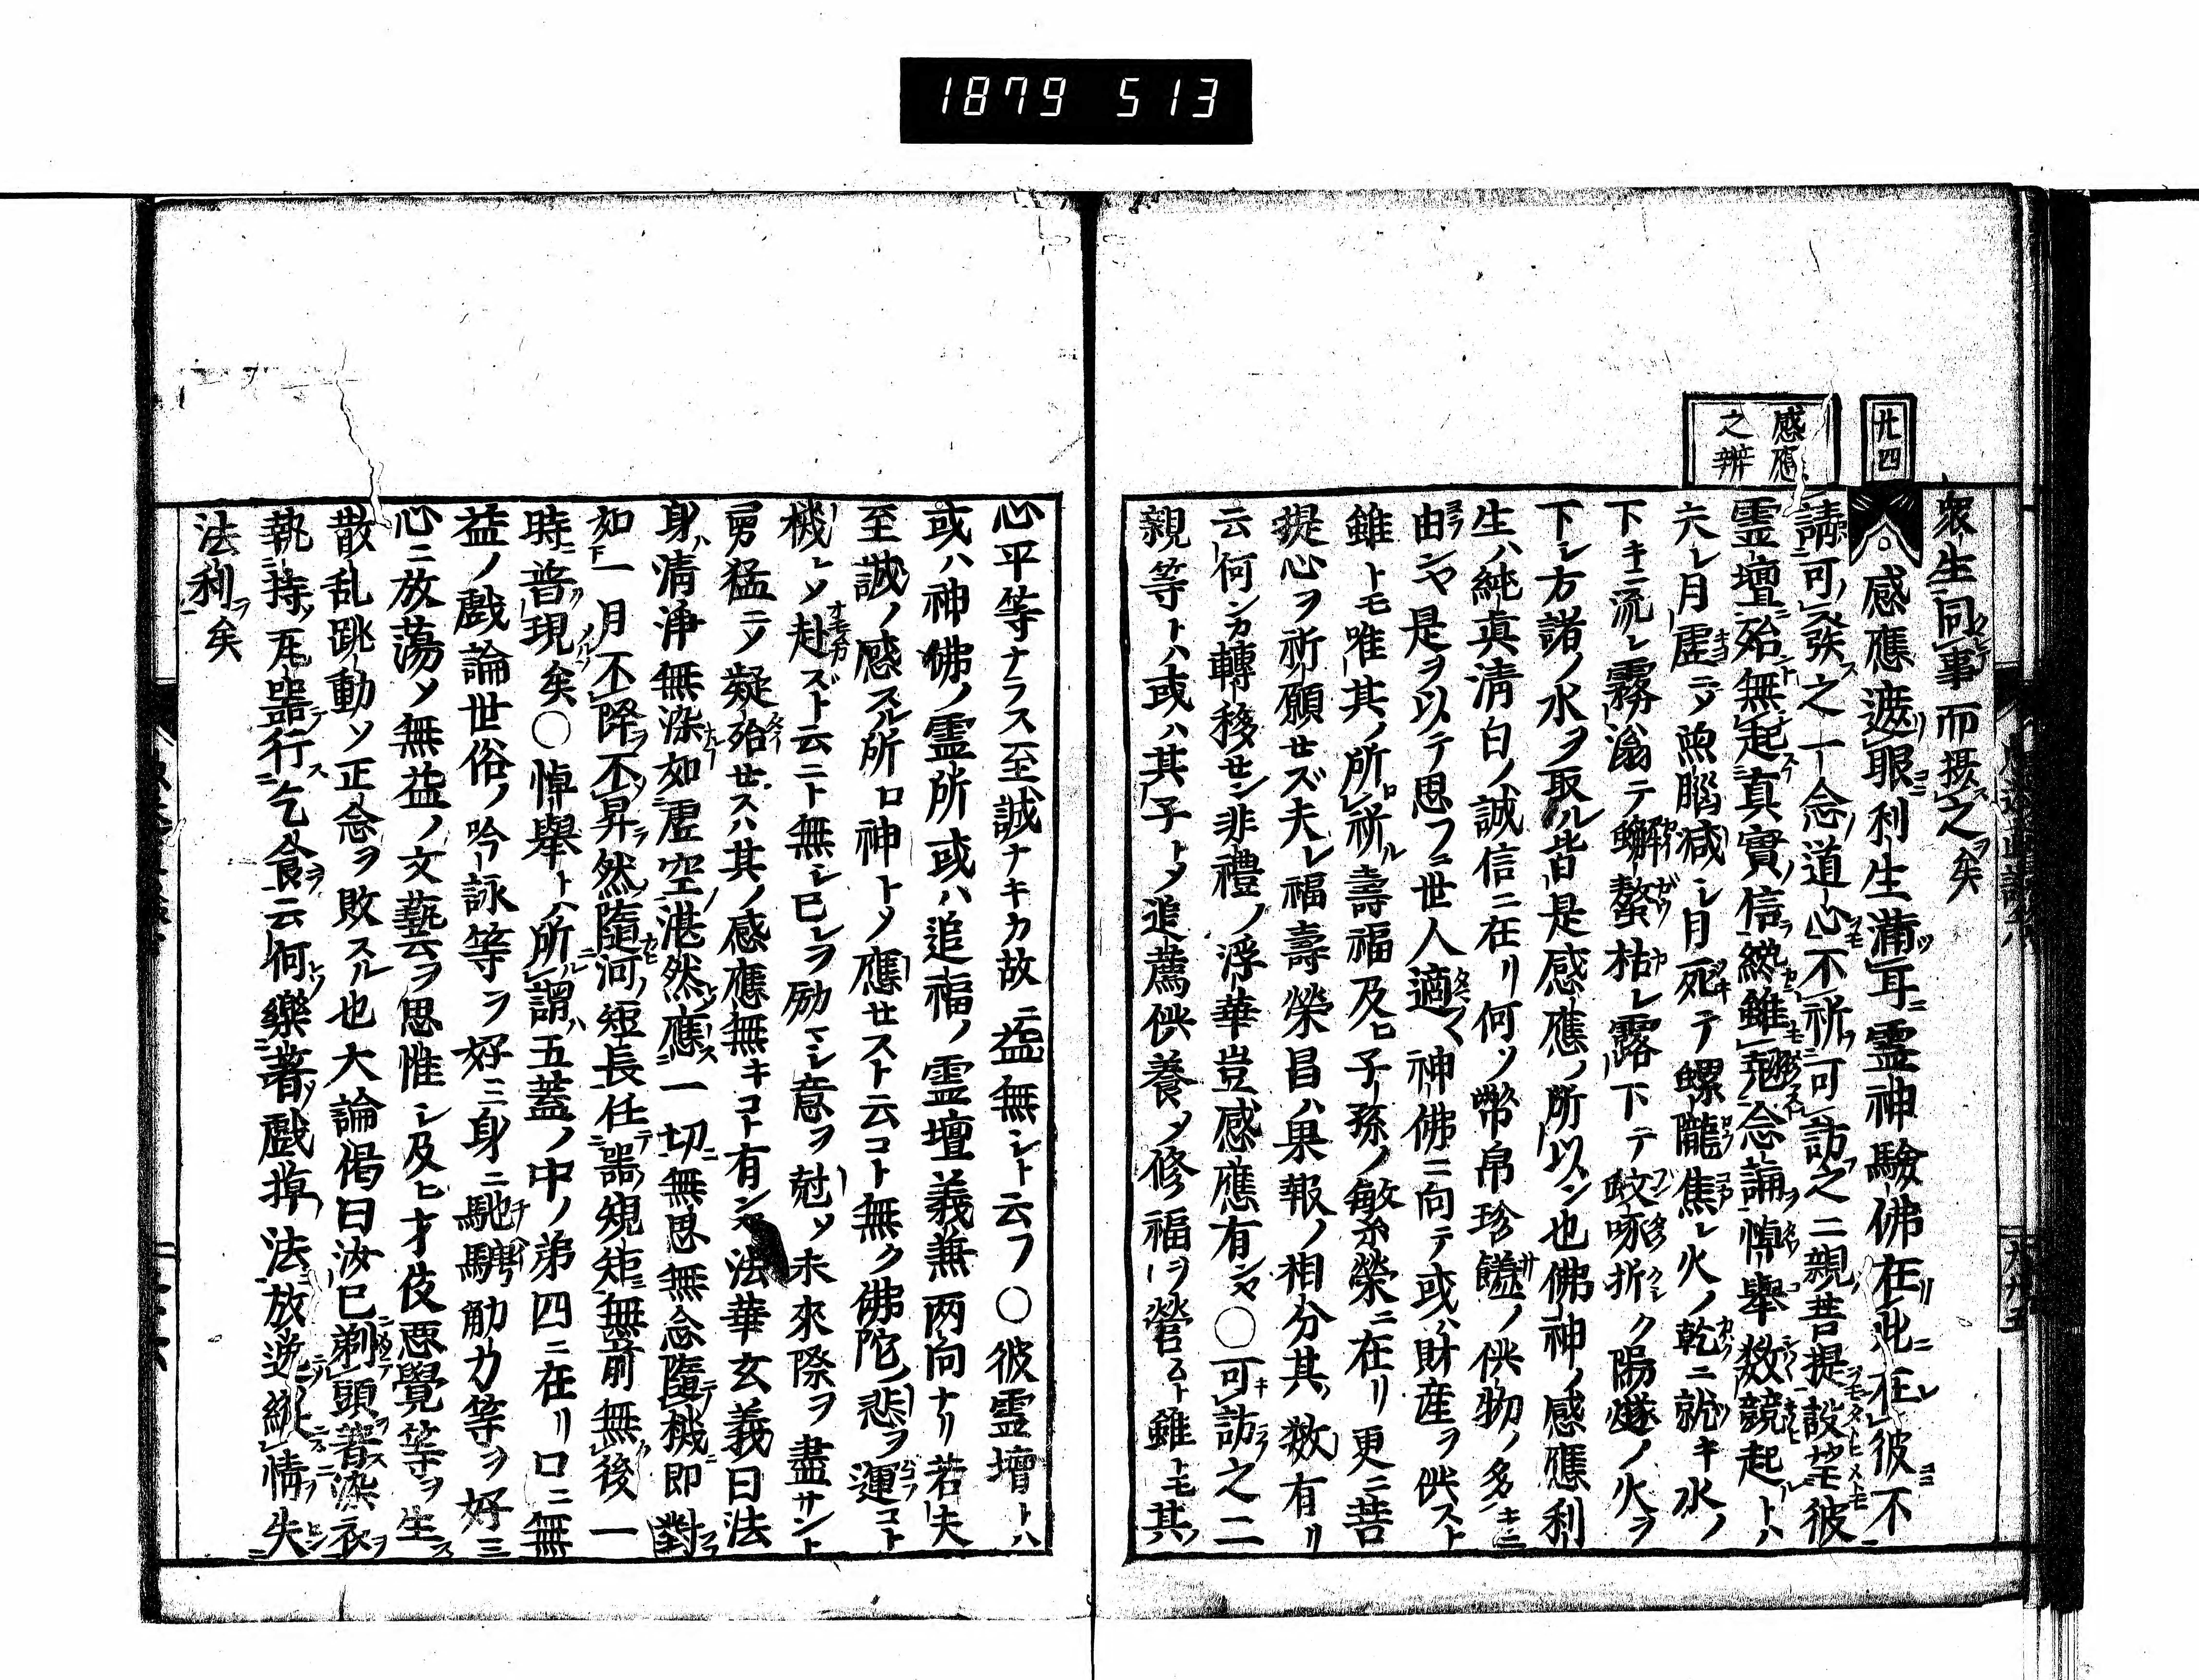 1879 513
廿四
感應
之辨
衆生同事而摂之矣
○感應遮眼利生滿耳霊神驗佛在此在彼不
請可弥之一念道心不祈可訪之二親菩提設望彼
霊壇殆無起真實信縱雖尅念論悼舉数競起トハ
夫レ月虚ニシテ魚腦减シ月死テ螺蠬焦レ火ノ乾ニ就キ水ノ
下キニ流レ霧滃テ蠏螯枯レ露下テ蚊啄折ク陽燧ノ火ヲ
下シ方諸ノ水ヲ取ル皆是感應ノ所以ン也佛神ノ感應利
生ハ純真清白ノ誠信ニ在リ何ソ幣帛珍饈ノ供物ノ多キニ
由ンヤ是ヲ以テ思フニ世人適マ神佛ニ向テ或ハ財産ヲ供スト
雖トモ唯其ノ所祈ル壽福及ヒ子孫ノ敏繁榮ニ在リ更ニ菩
提心ヲ祈リ願セズ夫レ福壽榮昌ハ果報ノ相分其ノ数有リ
云何ンカ轉移セン非禮ノ浮華豈感應有ンヤ○可訪之二
親等トハ或ハ其ノ子トメ追薦供養メ修福ヲ營ムト雖トモ其ノ
心平等ナラス至誠ナキカ故ニ益無シト云フ○彼霊壇トハ
或ハ神佛ノ霊所或ハ追福ノ霊壇義兼両向ナリ若夫
至誠ノ感スル所ロ神トメ應セスト云コト無ク佛陀ノ悲ヲ運コト
機トソ赴ズト云ニト無シ已レヲ励マシ意ヲ尅ソ未來際ヲ盡サント
勇猛ニソ凝殆セスハ其ノ感應無キコト有ンヤ法華玄義曰法
身ハ清浄無染如虚空湛然應一切無思無念隨機即對
如一月不降不昇然隨河短長任噐規矩無前無後一
時普現矣○悼舉トハ所謂五蓋ノ中ノ第四ニ在リ口ニ無
益ノ戲論世俗ノ吟詠等ヲ好ミ身ニ馳騁觔力等ヲ好ミ
心ニ放荡メ無益ノ文藝ヲ思惟シ及ヒ才伎悪覺等ヲ生
散乱跳動ソ正念ヲ敗スル也大論偈曰汝已剃頭著染衣
執持瓦噐行乞食云何樂著戲掉法放逸縱情失
法利矣